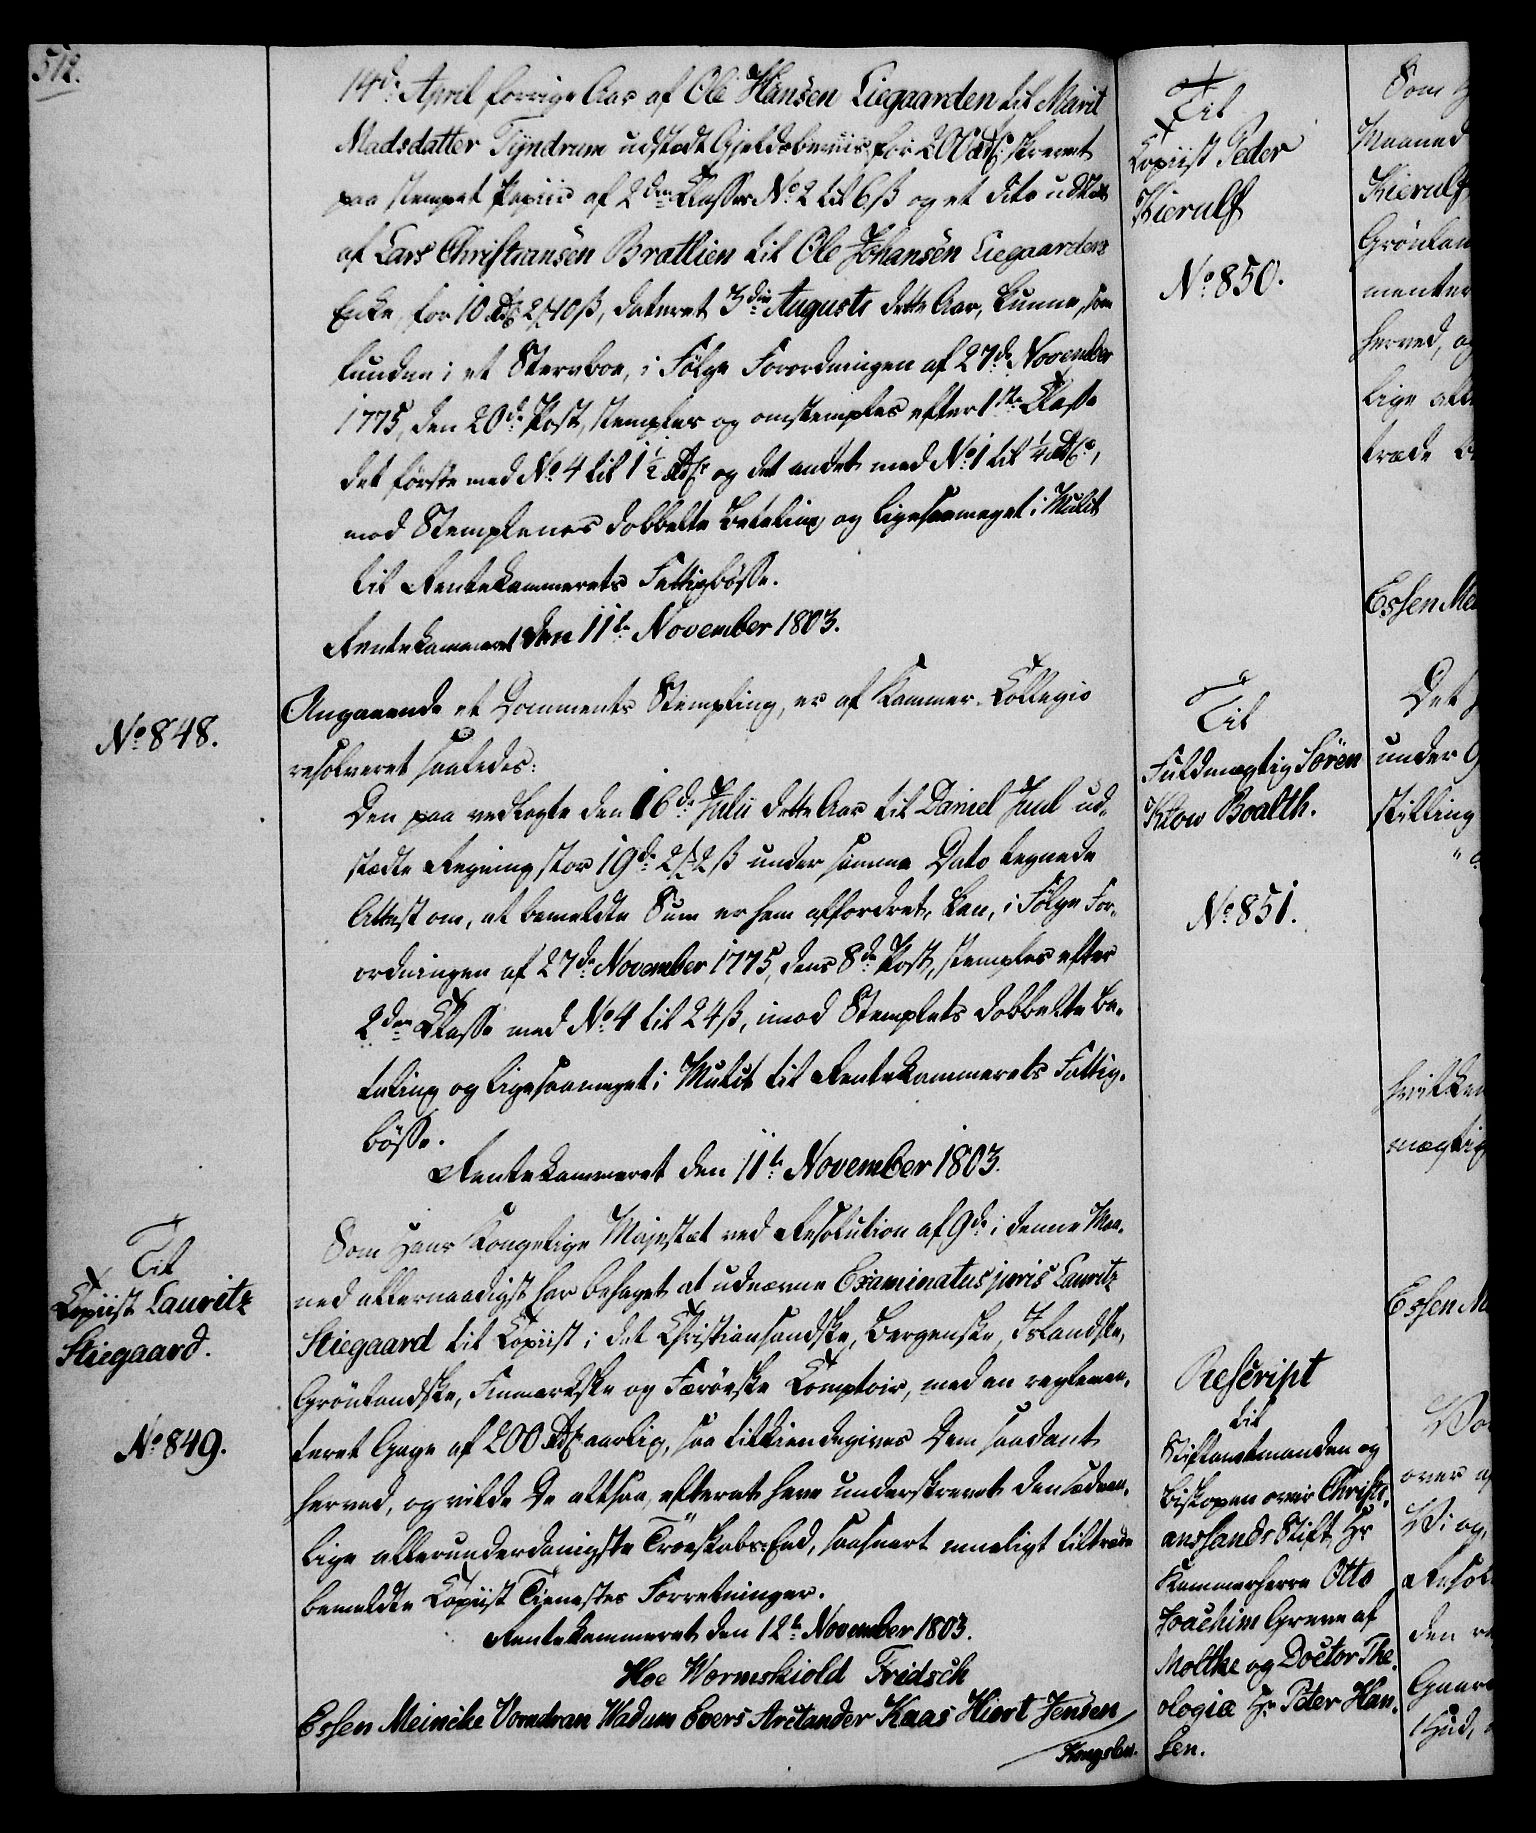 512.
14d. April forrige Aar af Ole Hansen Liegaarden til Marit
Madsdatter Tyndrum udstedt Gjeldsbeviis for 200 Rdlr. skrevet
paa stemplet Papiir af 2den Classes No. 2 til 6 ß og et dito udstedt
af Lars Christiansen Bratlien til Ole Johansen Liegaardens
Enke, for 10 Rdlr 2 10 ß, dateret 3die Augusti dette Aar, kunne, som
funden i et Sterboe, i Følge Forordningen af 27de November
1775, den 20de Post, stemples og omstemples efter 1ste Classe
det første med No. 4 til 1½ Rdlr og det andet med No. 1 til ¼ Rdlr,
mod Stemplenes dobbelte Betaling og ligesaameget i Mulct
til Rentekammerets Fattigbøsse.
Rentekammeret den 11te November 1803.
No. 848.
Angaaende et Documents Stempling, er af Kammer-Collegio
resolveret saaledes:
Den paa vedlagte den 16de Julii dette Aar til Daniel Juul ud-
stædte Regning stor 19 2 2 ß under samme Dato tegnede
Attest om, at bemeldte Sum er ham affordret, kan, i Følge For-
ordningen af 27de November 1775, dens 8de Post, stemples efter
2den Classe med No. 4 til 24 ß, imod Stemplets dobbelte Be-
taling og ligesaameget i Mulct til Rentekammerets Fattig-
bøsse.
Rentekammeret den 11te November 1803.
Til
Copiist Lauritz
Stiegaard.
No. 849.
Som Hans Kongelige Majestæt ved Resolution af 9de i denne Maa-
ned allernaadigst har behaget at udnævne Examinatus juris Lauritz
Stiegaard til Copiist i det Christiansandske, Bergenske, Islandske,
Grønlandske, Finmarkske og Færøeske Comptoir, med en reglemen-
teret Gage af 200 Rdlr aarlig, saa tilkiendegives Dem saadant
herved, og vilde De altsaa, efterat have underskrevet den sædvan-
lige allerunderdanigste Troeskabs-Eed, saasnart mueligt tiltræde
bemeldte Copiist Tienestes Forretninger.
Rentekammeret den 12te November 1803.
Hoe Wormskiold Fridsch
Essen Meincke Vomdran Wadum Evers Arctander Kaas Hiort Jensen
Kongslev.
Til
Copiist Peder
Kierulf
No. 850.
Til
Fuldmægtig Søren
Klow Boalth.
No. 851.
Rescript
til
Stiftamtmanden og
Biskopen over Christi-
ansands Stift, Hr
Kammerherre Otto
Joachim Greve af
Moltke og Doctor The-
ologiæ Hr Peter Han-
sen.
Som
Maaned
Kierulf
Grønlan
menter
herved, og
lige all
træde b
Essen Me
Det
under
stilling
hvilken
mægtig
Essen M
over
Vi og
Resol
den
Gaard